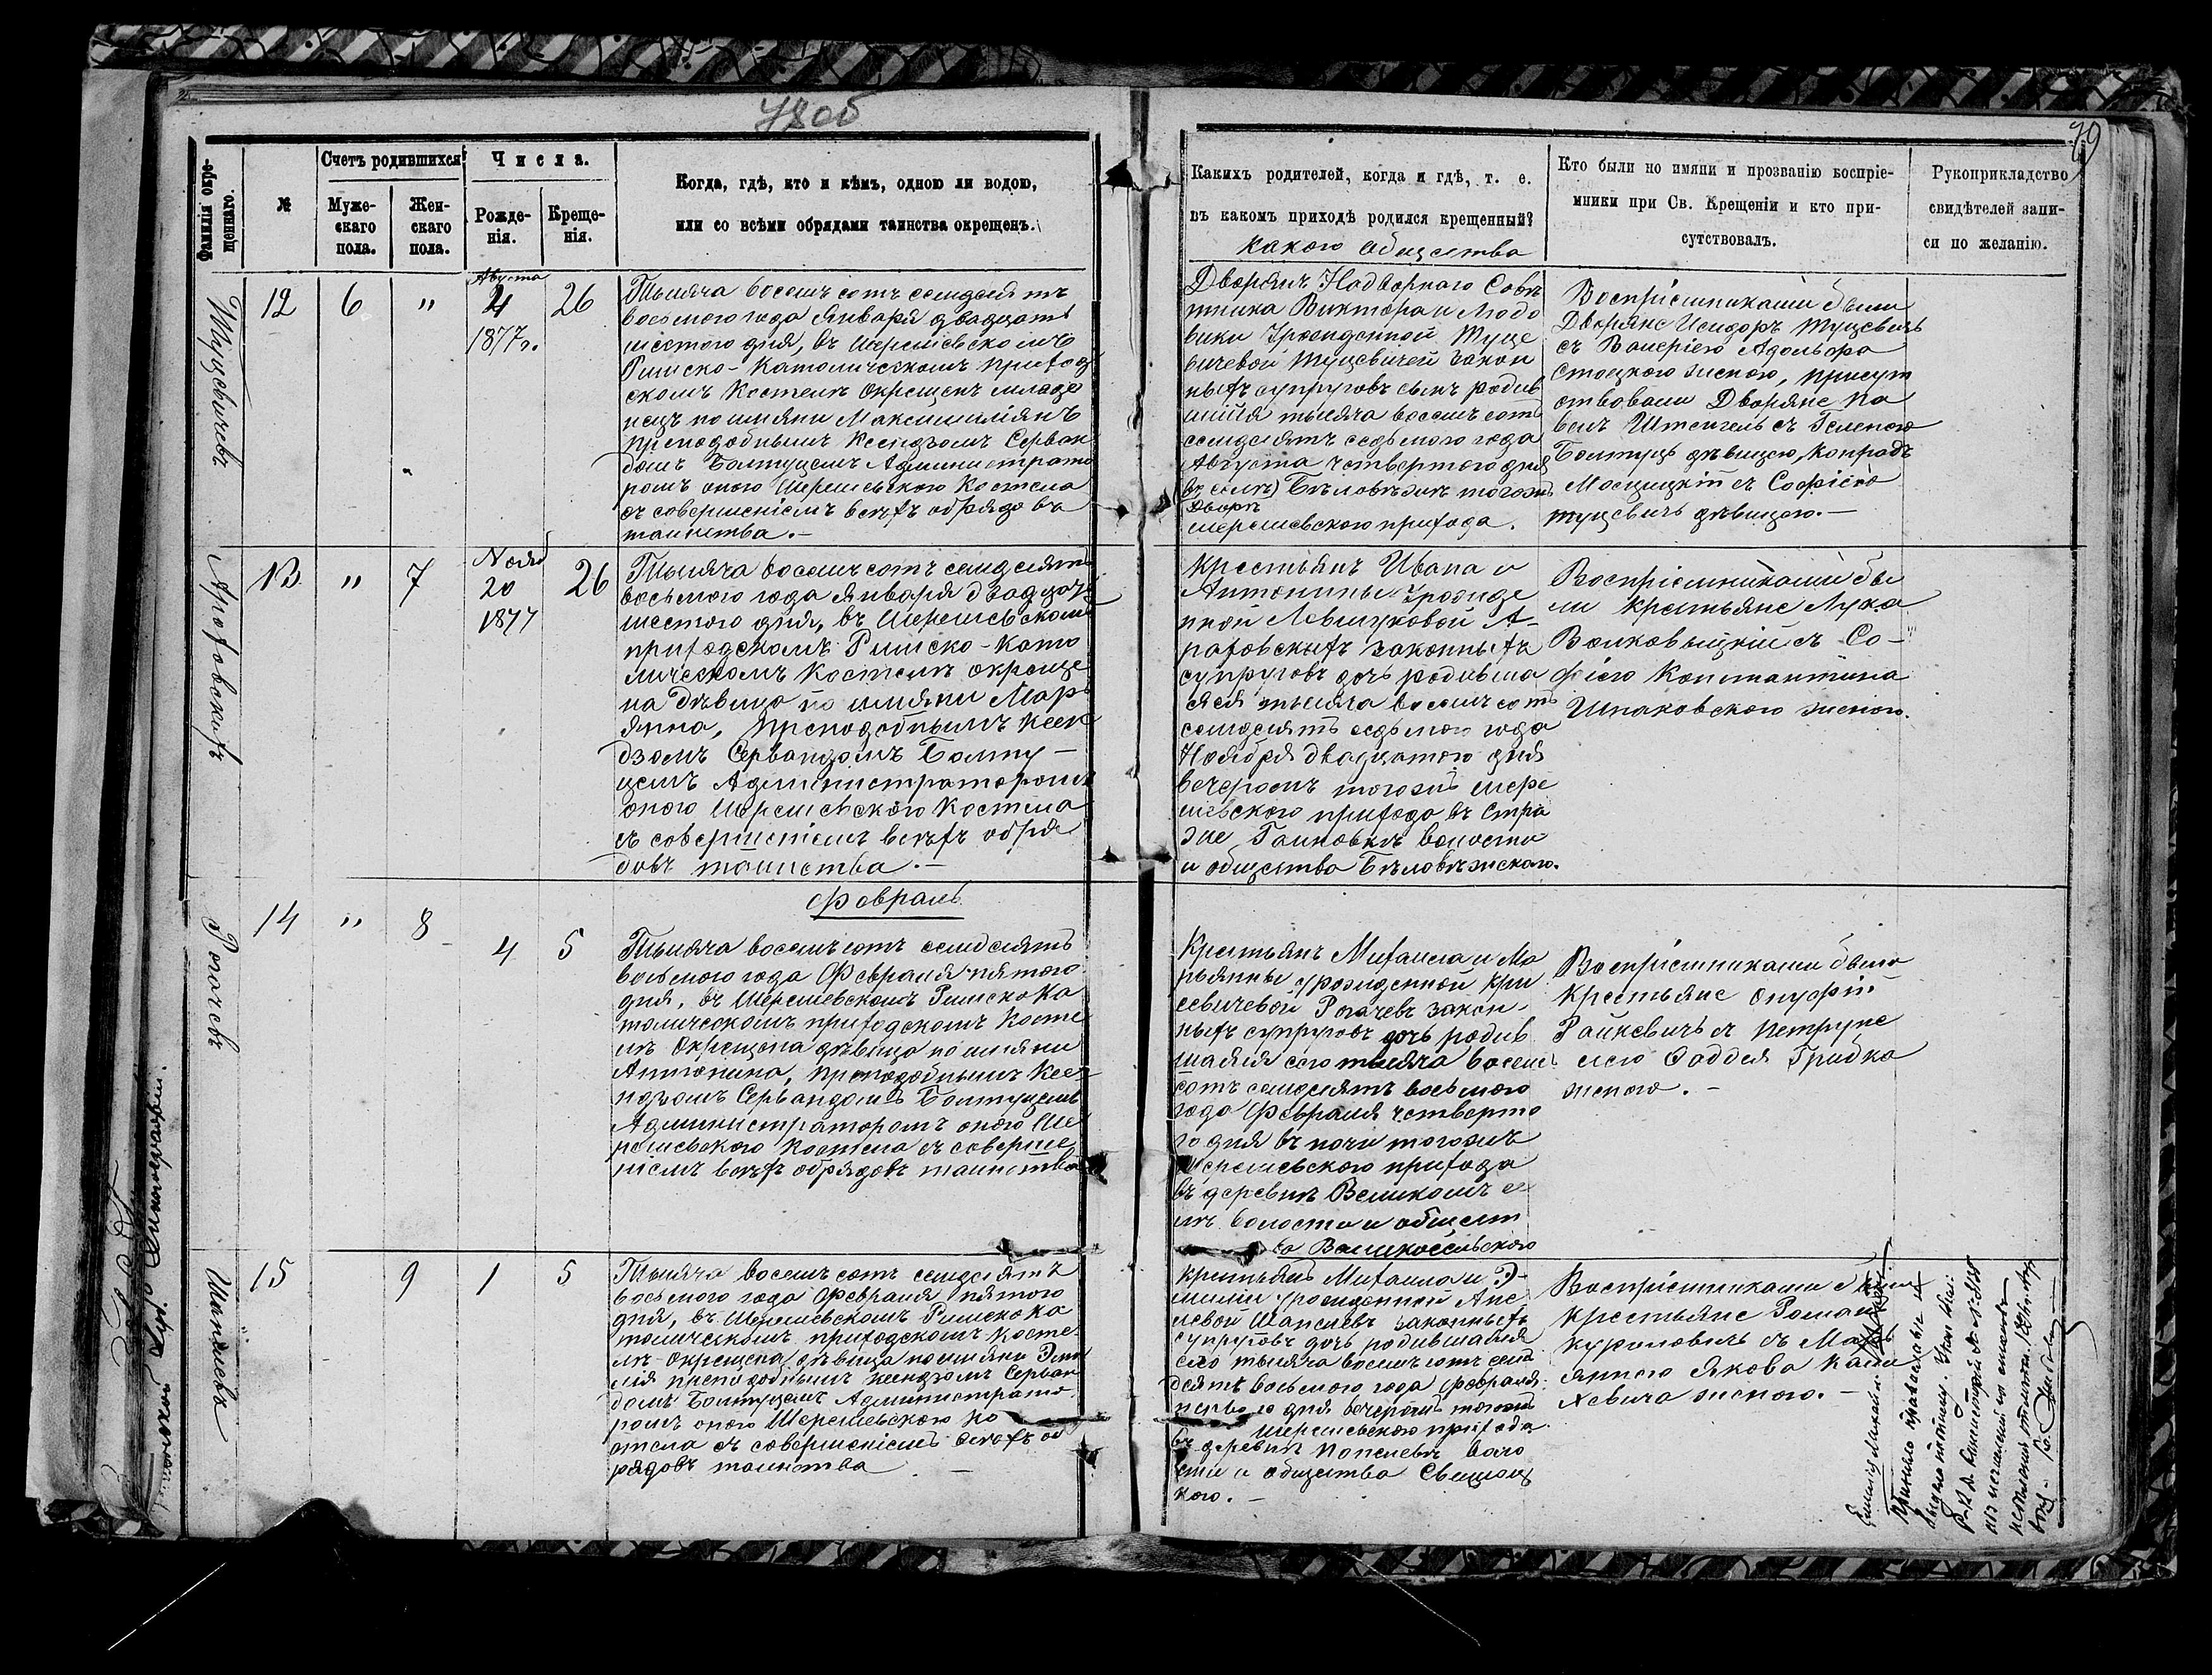 78об
79
Фамилія окре-
щеннаго.
№
Счетъ родившихся
Муже-
скаго
пола.
Жен-
скаго
пола.
Числа.
Рожде-
нія.
Креще-
нія.
Когда, гдѣ, кто и кѣмъ, одною ли водою,
или со всѣми обрядами таинства окрещенъ.
Какихъ родителей, когда и гдѣ, т. е.
въ какомъ приходѣ родился крещенный?
какого общества
Кто были по имяни и прозванію воспріе-
мники при Св. Крещеніи и кто при-
сутствовалъ.
Рукоприкладство
свидѣтелей запи-
си по желанію.
Туцевичевъ
12
6
"
Августа
4
1877 г.
26
Тысяча восемь сотъ семдесятъ
восьмого года Января двадцать
шестого дня, въ Шерешевскомъ
Римско-Католическомъ приход
скомъ Костелѣ Окрещенъ младе
нецъ по имяни Максимиліянъ
преподобнымъ Ксендзомъ Серван
домъ Болтуцемъ Администрато
ромъ оного Шерешевского Костела
съ совершеніемъ всѣхъ обрядовъ
таинства.—
Дворянъ Надворнаго Совѣ
тника Виктора и Людо
вики Урожденной Туце
вичевой Туцевичей закон
ныхъ супруговъ сынъ родив
шійся тысяча восемь сотъ
семдесятъ седьмого года
Августа четвертого дня
въ Бѣловѣжѣ тогожъ
Шерешевского прихода.
Воспріемниками были
Дворяне Исидоръ Туцевичъ
съ Валеріею Адольфа
Стоцкого женою, присут
ствовали Дворяне Па
велъ Штенгель съ Геленою
Болтуць дѣвицею, Конрадъ
Мосцицкій съ Софіею
Туцевичъ дѣвицею.—
Араховскихъ
13
"
7
Нояб
20
1877
26
Тысяча восемь сотъ семдесятъ
восьмого года Января двадцать
шестого дня, въ Шерешевскомъ
приходскомъ Римско-Като
лическомъ Костелѣ окреще
на дѣвица по имяни Марь
янна, преподобнымъ Ксен
дзомъ Сервандомъ Болту—
цемъ Администраторомъ
оного Шерешевского Костела
съ совершеніемъ всѣхъ обря
довъ таинства.—
Крестьянъ Ивана и
Антонины Урожде
нной Левчуковой А-
раховскихъ законныхъ
супруговъ дочь родивша
яся тысяча восемь сотъ
семдесятъ седьмого года
Ноября двадцатого дня
вечеромъ тогожъ Шере
шевского прихода въ Стра
жѣ Гайновкѣ волости
и общества Бѣловѣжского.
Воспріемниками бы
ли крестьяне Лука
Волковыцкій съ Со-
фіею Константина
Шпаковского женою.
Рогачевъ
14
"
8
Февраль
4
5
Тысяча восемь сотъ семдесятъ
восьмого года Февраля пятого
дня, въ Шерешевскомъ Римско Ка
толическомъ приходскомъ Косте
лѣ Окрещена дѣвица по имяни
Антонина, преподобнымъ Ксен
дзомъ Сервандомъ Болтуцемъ
Администраторомъ оного Ше
решевского Костела съ соверше
ніемъ всѣхъ обрядовъ таинства
Крестьянъ Михаила и Ма
рьянны Урожденной Кри
севичевой Рогачевъ закон
ныхъ супруговъ дочь родив
шаяся сего тысяча восемь
сотъ семдесятъ восьмого
года Февраля четверто
го дня въ ночи тогожъ
Шерешевского прихода
въ деревнѣ Великомъ се
лѣ волости и общест
ва Великосельского
Воспріемниками были
Крестьяне Онуфрій
Райкевичъ съ Петруне
лею Фаддея Грибка
женою.—
Шапелевъ
15
9
1
5
Тысяча восемь сотъ семдесятъ
восьмого года Февраля пятого
дня, въ Шерешевскомъ Римско Ка
толическомъ приходскомъ Косте
лѣ Окрещена дѣвица по имяни Эми
лія преподобнымъ Ксендзомъ Серван
домъ Болтуцемъ Администрато
ромъ оного Шерешевского Ко
стела съ совершеніемъ всѣхъ об
рядовъ таинства —
Крестьянъ Михаила и Э-
миліи Урожденной
Шапелевъ законныхъ
супруговъ дочь родившаяся
сего тысяча восемь сотъ сем
десятъ восьмого года Февраля
перваго дня вечеромъ тогожъ
Шерешевского прихода
въ деревнѣ Попелевѣ воло
сти и общества Свищец
кого.—
Воспріемниками были
Крестьяне Роман
Куриловичъ съ Марь
янною Якова Каш
хевича женою.—